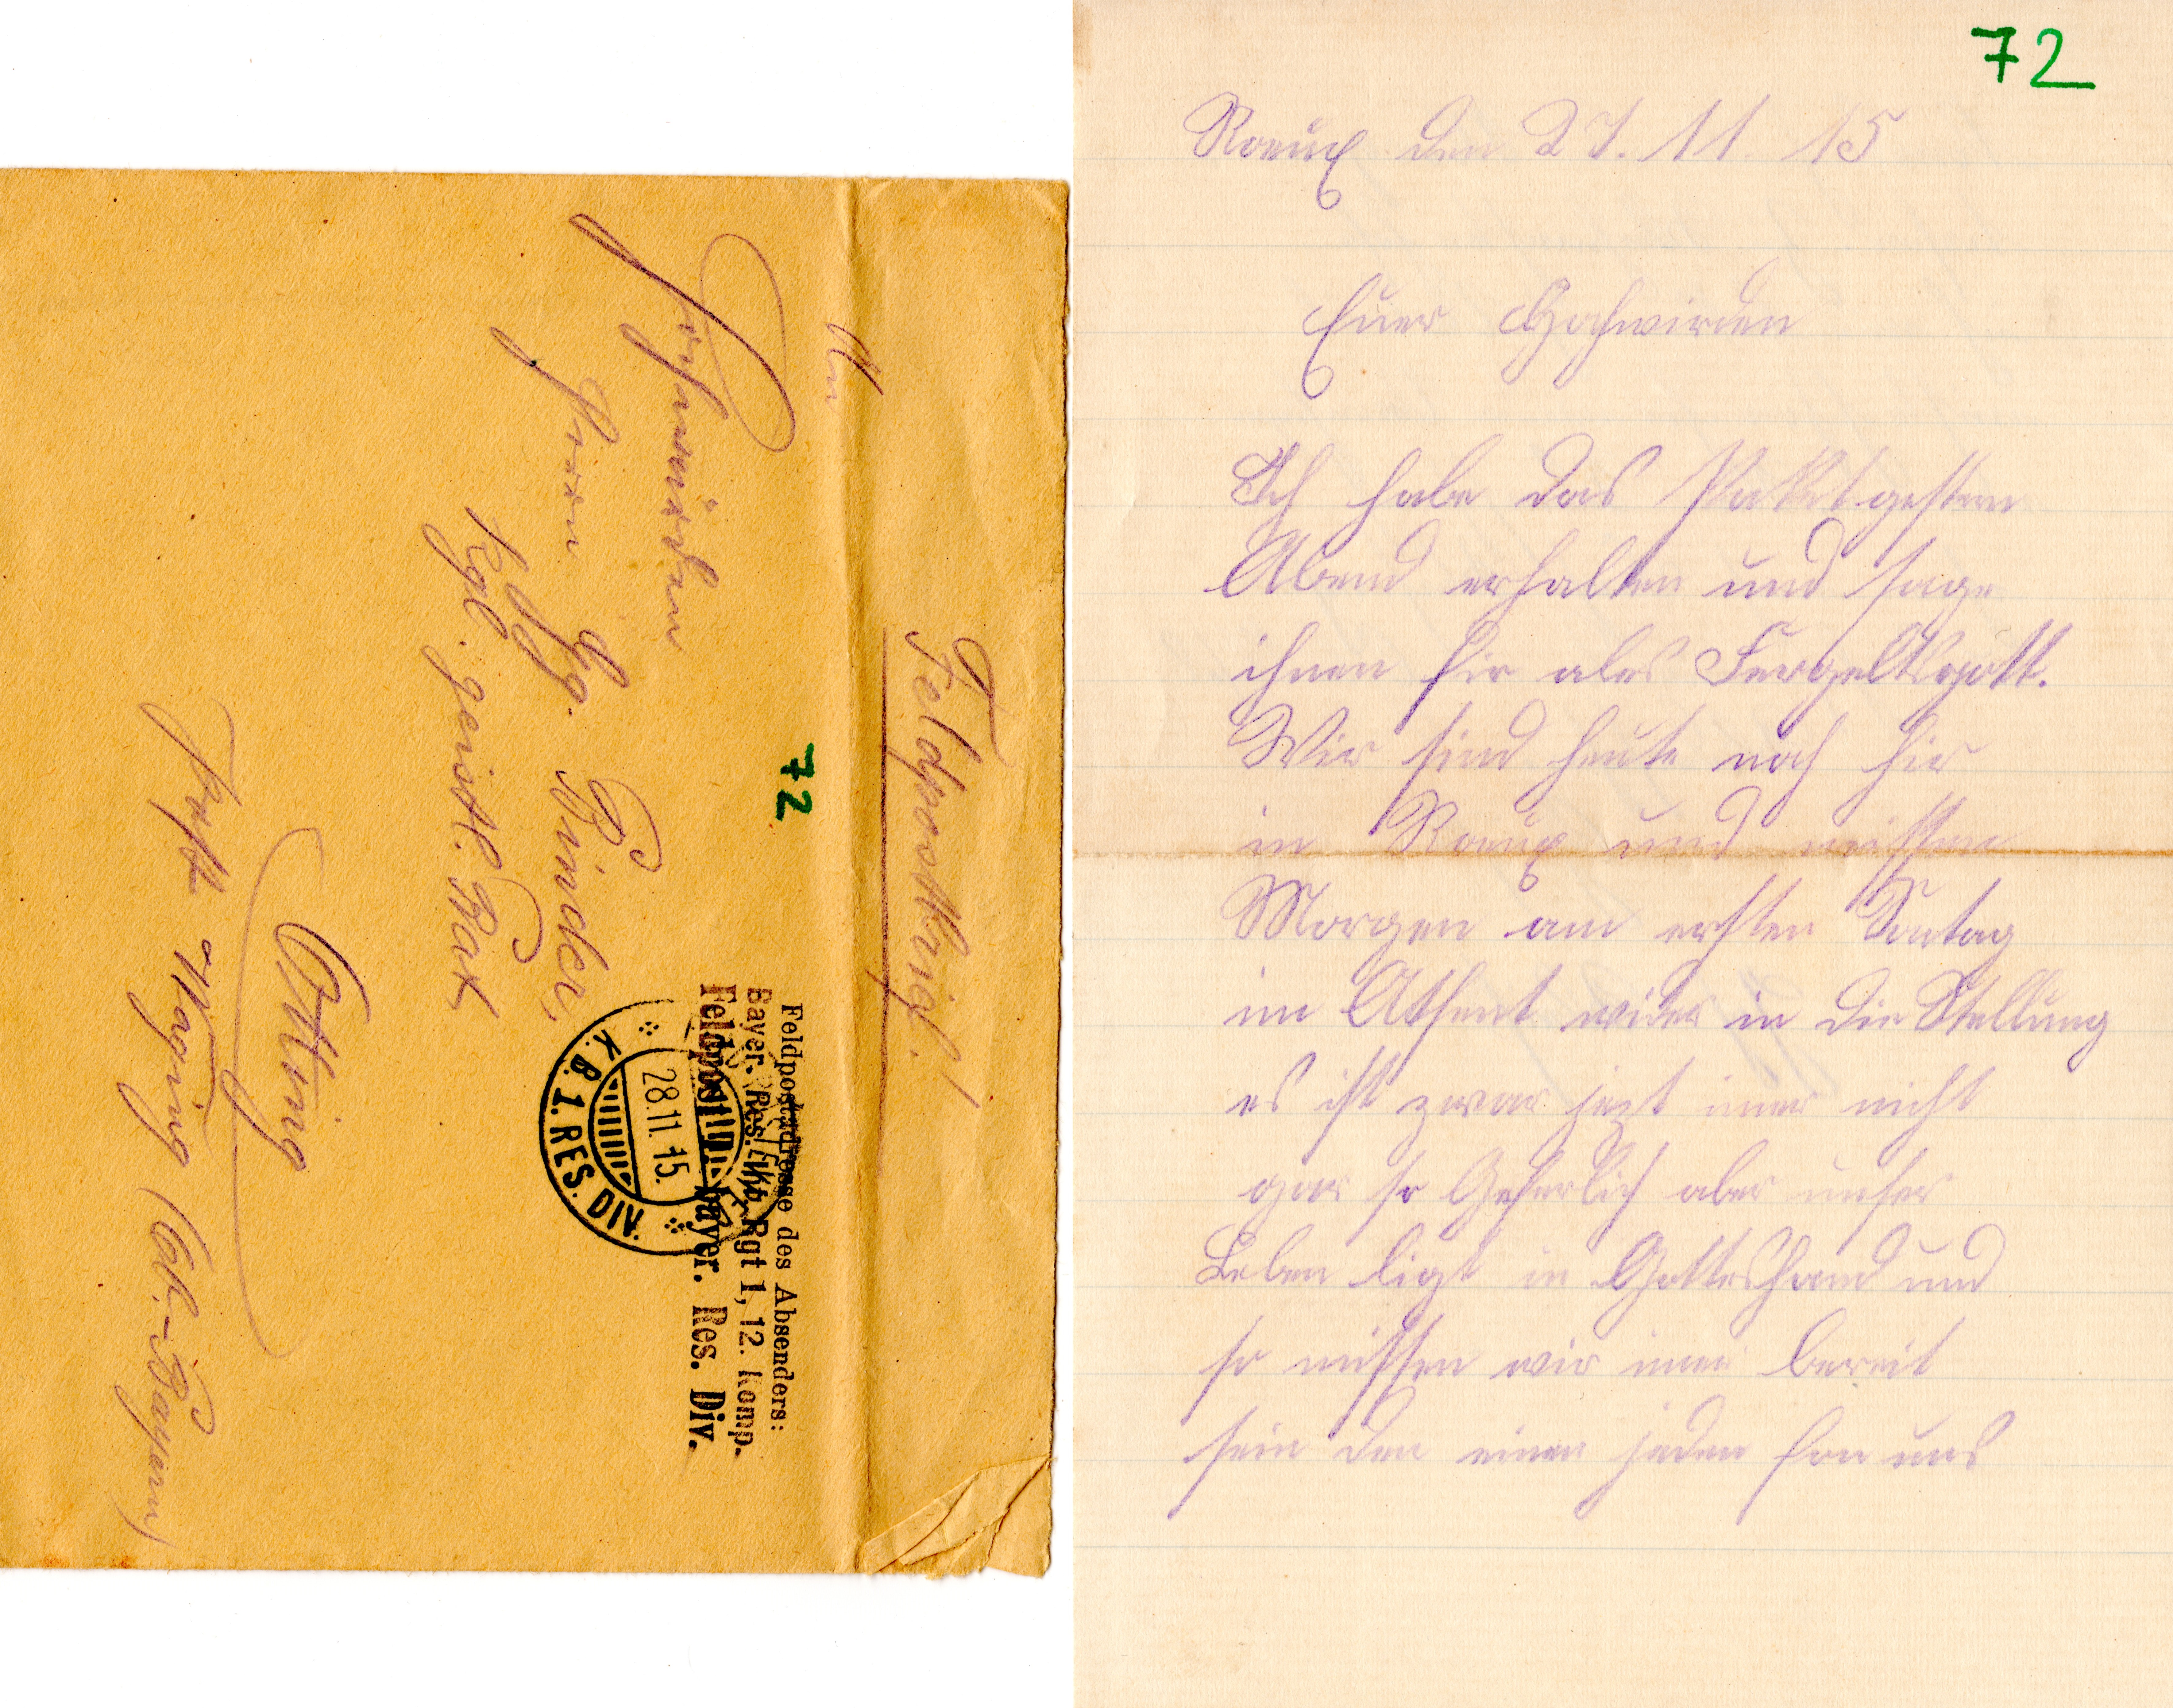 Feldpostbrief!
An
Hochwürden
Herrn Hg. Binder,
Kgl. geistl. Rat
Otting
Post Waging (Ob.-Bayern)
72
Feldpostadresse des Absenders:
Bayer. Res. Inf. Rgt 1, 12. Komp.
Feldpost bayer. Res. Div.
K.B. 1. RES. DIV.
28.11.15.
72
Roeux den 27. 11 15
Euer Hochwirden
Ich habe das Paket gestern
Abend erhalten und sage
ihnen fir ales Fergeltsgott.
Wir sind heute noch hir
in Roeux und missen
Morgen am ersten Sontag
im Athfent wider in die Stellung
es ist zwar jezt imer nicht
gar so Geferlich aber unser
Leben ligt in Gotteshand und
so missen wir imer bereit
sein den einen jeden fon uns